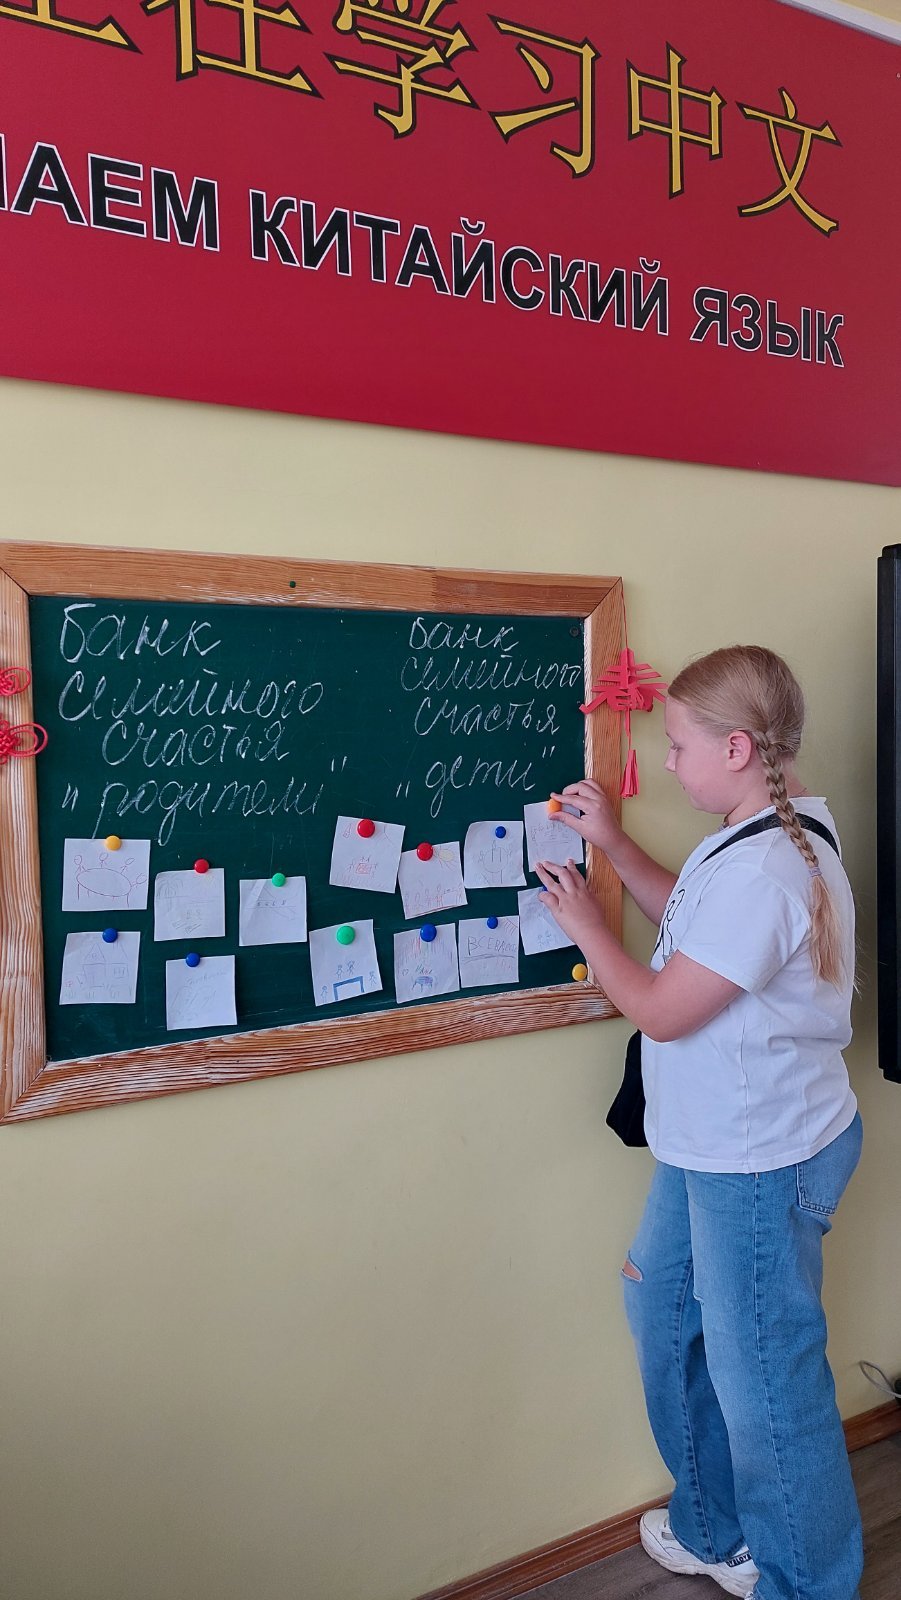 在学习中文
АЕМ КИТАЙСКИЙ ЯЗЫК
банк
семейного
счастья
"родители"
банк
семейного
счастья
"дети"